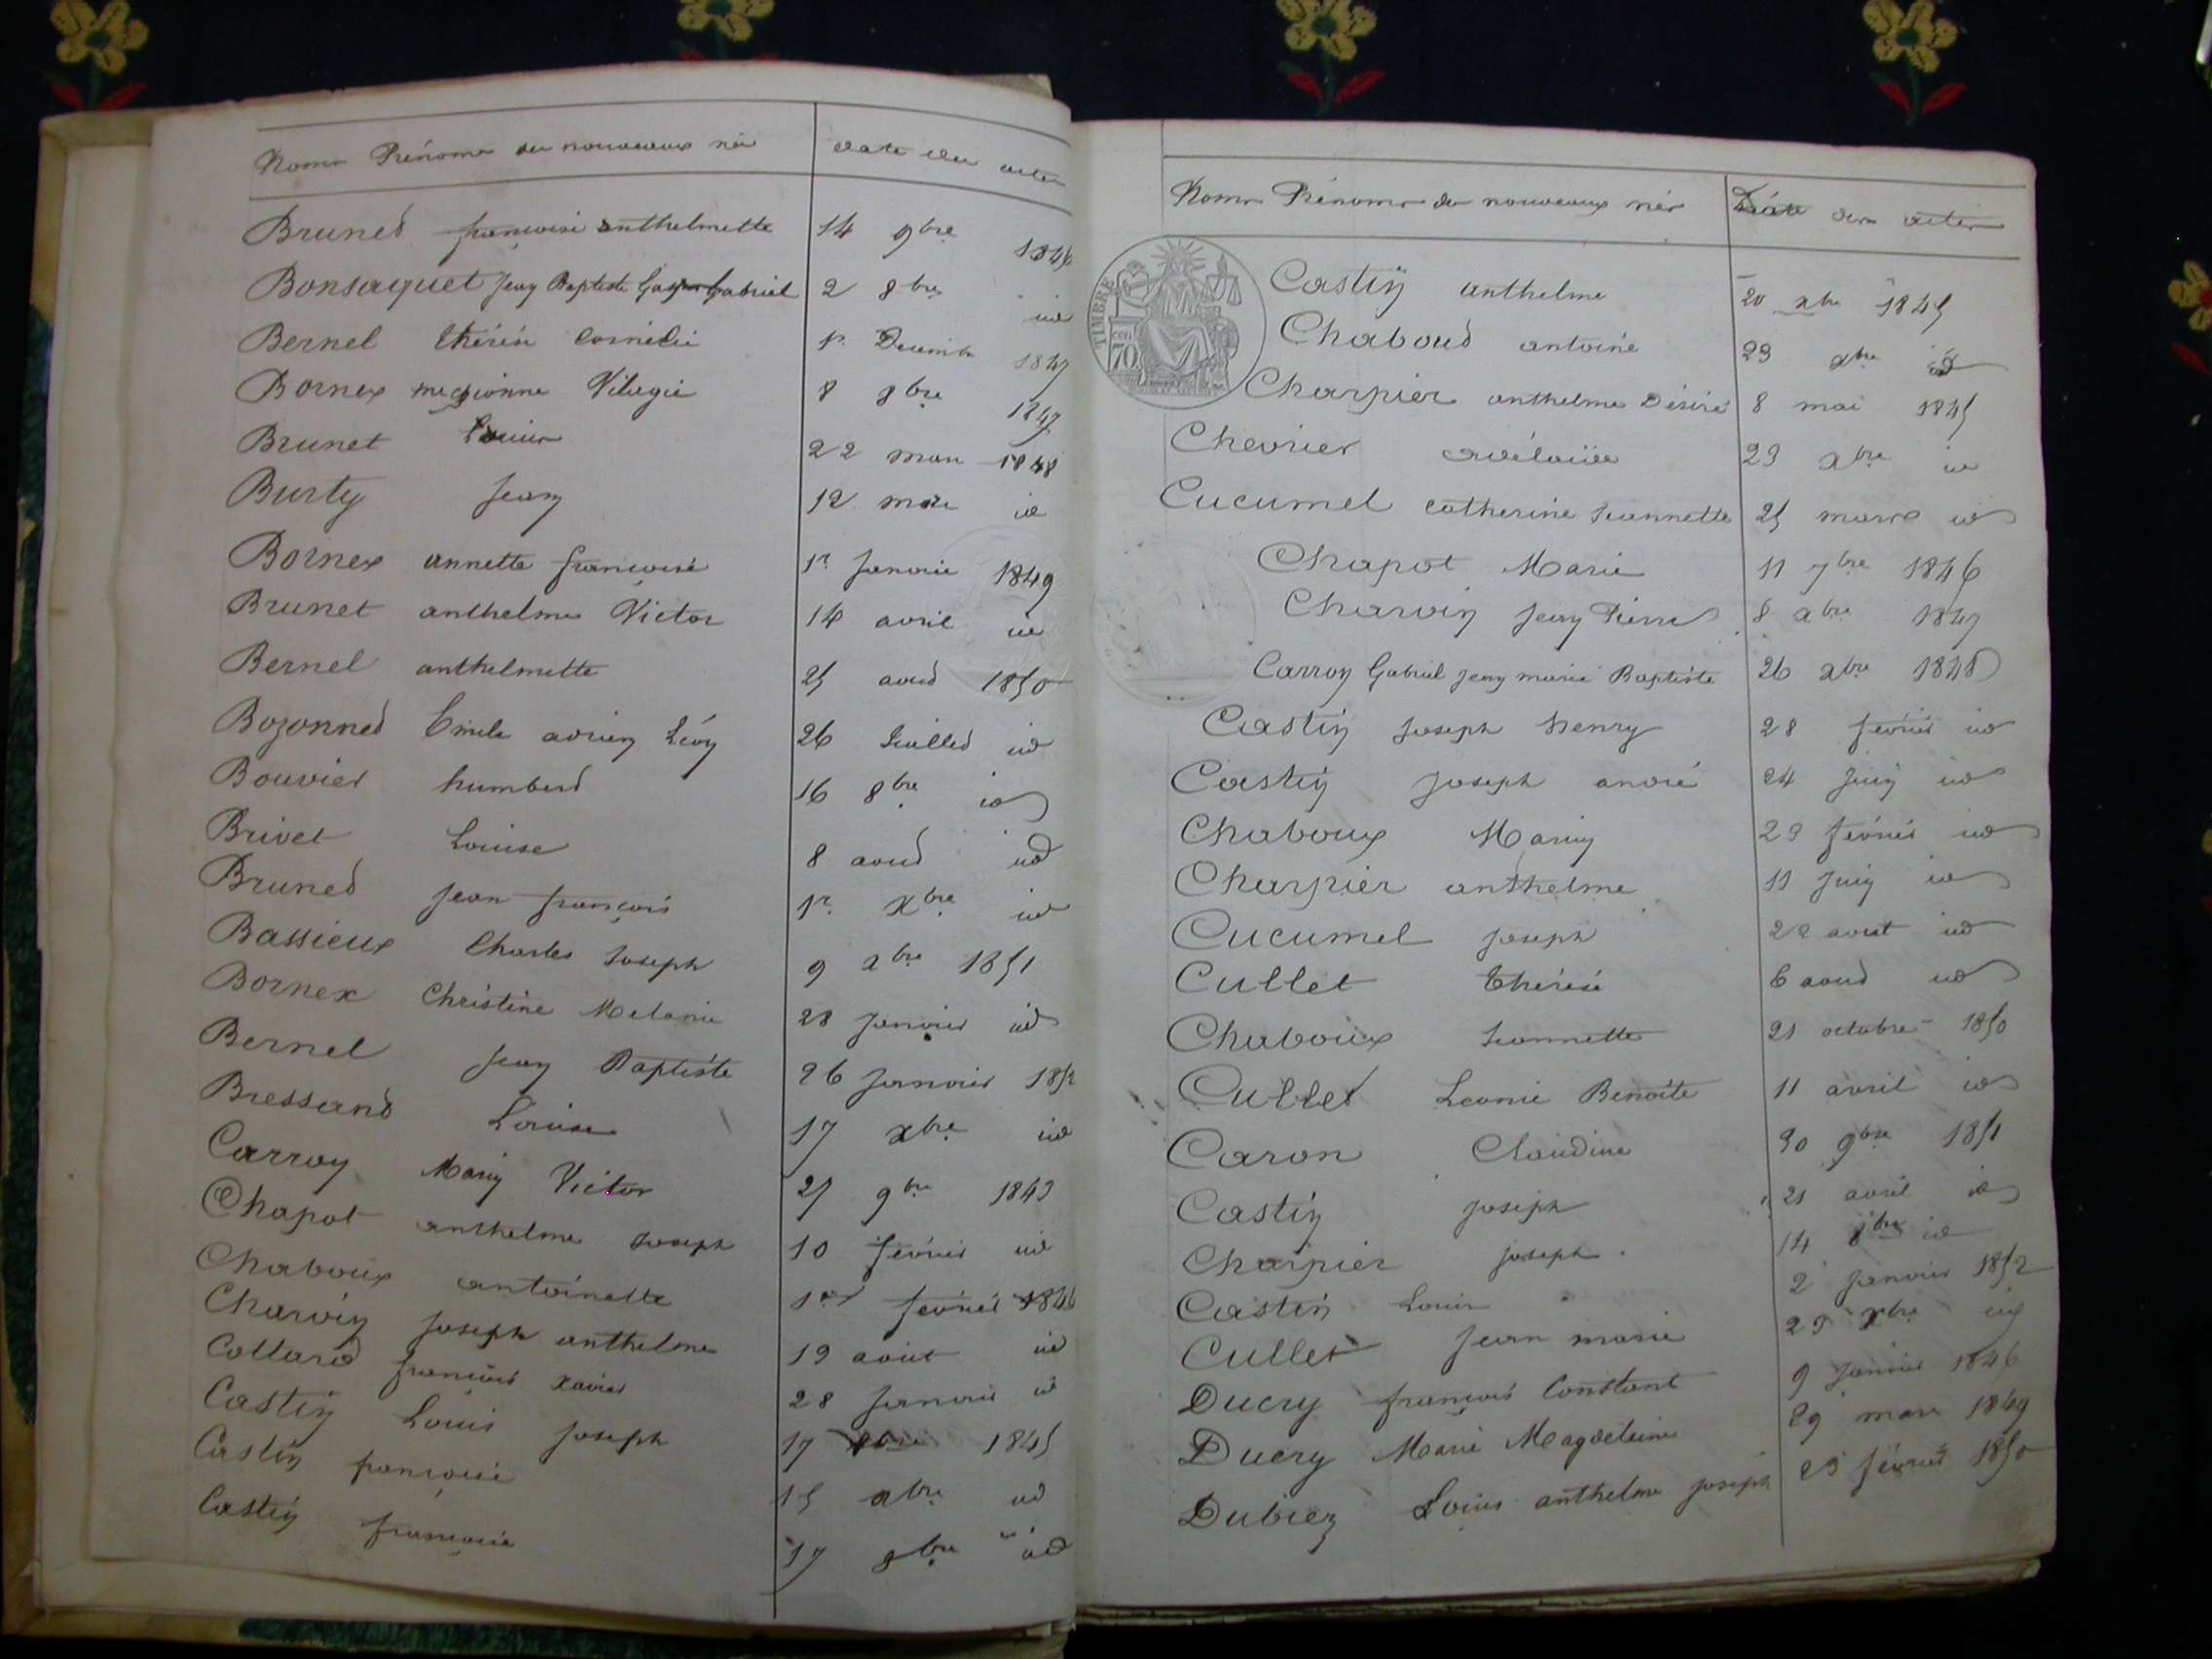 Noms Prénoms des nouveaux nés Date des actes
Bruned françoise anthelmette 14 9bre 1846
Bonsaquet Jean Baptiste Gabriel 2 8bre id
Bernel thérèse Cornélie 1er Décembre 1847
Bornex 8 8bre 1847
Brunet Louise 22 mars 1848
Burty Jean 12 mars id
Bornex annette françoise 1r Janvier 1849
Brunet anthelme Victor 14 avril id
Bernel anthelmette 25 aoud 1850
Bozonned Emile adrien Lévy 26 Juilled id
Bouvier humberd 16 8bre id
Brivet Louise 8 aoud id
Bruned Jean françois 1r Xbre id
Bassieux Charles Joseph 9 xbre 1851
Bornex Christine Melanie 28 Janvier id
Bernel Jean Baptiste 26 Janvier 1852
Bressand Louise 17 xbre id
Carroy Marie Victor 27 9bre 1843
Chapot anthelme Joseph 10 février id
Chaboux antoinette 1er février 1846
Charvin Joseph anthelme 19 août id
Collard françois Xavier 28 Janvier id
Castin Louis Joseph 17 1845
Castin françoise 15 xbre id
Castin françoise 17 8bre id
Noms Prénoms des nouveaux nés Date des actes
TIMBRE
70
Castin anthelme 20 xbre 1845
Chaboud antoine 23 xbre id
Charpier anthelme Désiré 8 mai 1845
Chevrier adélaïde 23 xbre id
Cucumel catherine Jeannette 25 mars id
Chapot Marie 11 7bre 1846
Charvin Jean Pierre 8 xbre 1847
Carroy Gabriel Jean marie Baptiste 26 xbre 1848
Castin Joseph henry 28 février id
Castin Joseph andré 24 Juin id
Chaboux Marie 23 février id
Charpier anthelme 11 Juin id
Cucumel Joseph 22 aout id
Cullet thérèse 6 aoud id
Chaboux Jeannette 21 octobre 1850
Cullet Leonie Benoîte 11 avril id
Caron Claudine 30 9bre 1851
Castin Joseph 21 avril id
Charpier Joseph 14 8bre id
Castin Louis 2 Janvier 1852
Cullet Jean marie 23 xbre id
Ducry françois Constant 9 Janvier 1846
Ducry Marie Magdeleine 29 mars 1849
Dubiez Louis anthelme Joseph 23 février 1850